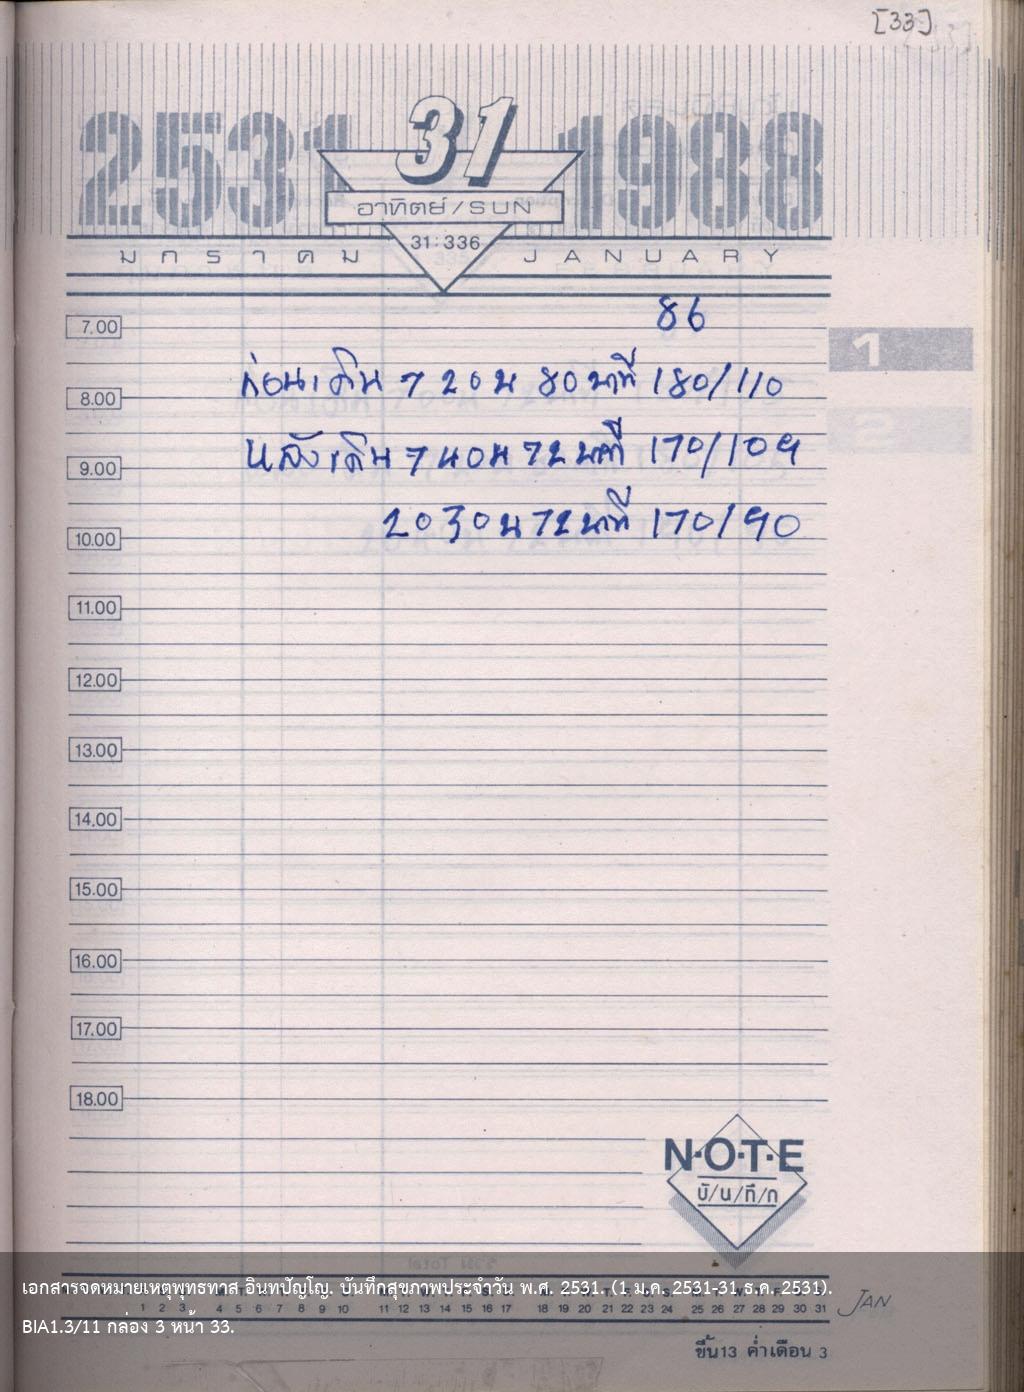 [33]
2531 31 1988
อาทิตย์/SUN
31:336
มกราคม JANUARY
86
7.00
1
ก่อนเดิน 7 20 น 80 นาที 180/110
8.00
2
หลังเดิน 7 40 น 72 นาที 170/109
9.00
20 30 น 72 นาที 170/90
10.00
11.00
12.00
13.00
14.00
15.00
16.00
17.00
18.00
N·O·T·E
บั/น/ทึ/ก
เอกสารจดหมายเหตุพุทธทาส อินทปัญโญ. บันทึกสุขภาพประจำวัน พ.ศ. 2531. (1 ม.ค. 2531-31 ธ.ค. 2531).
1 2 3 4 5 6 7 8 9 10 11 12 13 14 15 16 17 18 19 20 21 22 23 24 25 26 27 28 29 30 31 JAN
BIA1.3/11 กล่อง 3 หน้า 33.
ขึ้น13 ค่ำเดือน 3